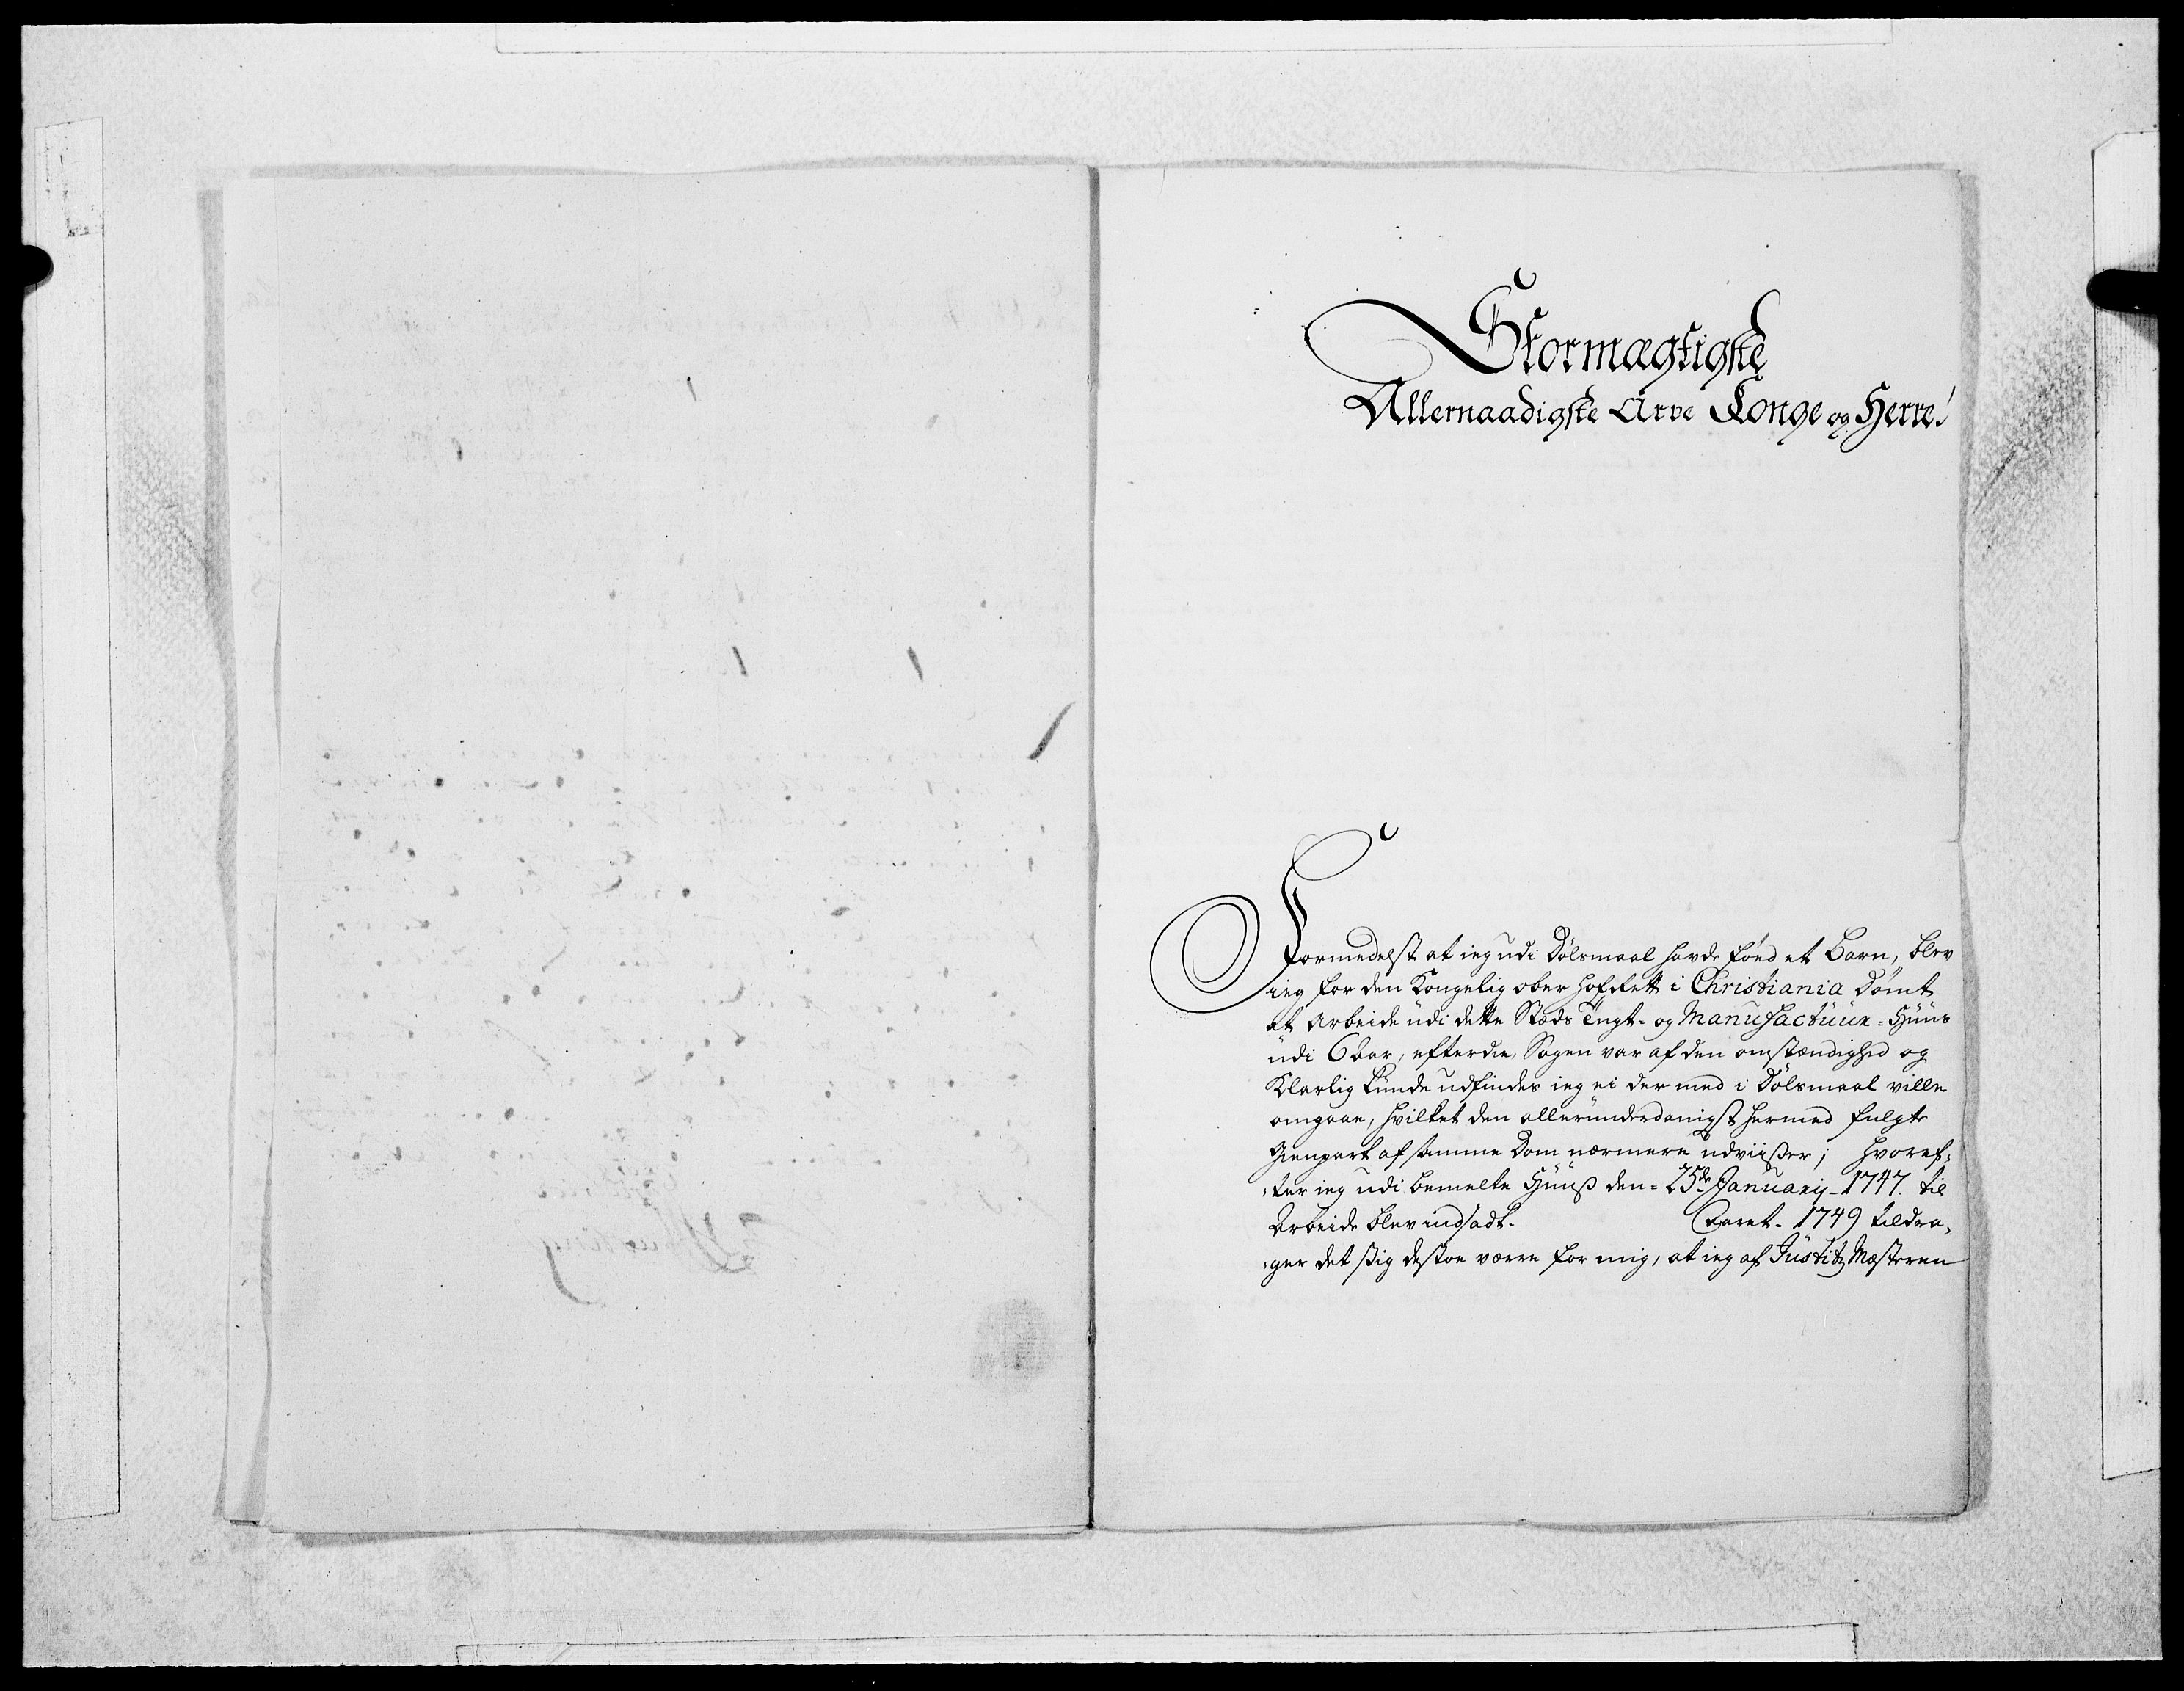 Stormægtigste
Allernaadigste Arve Konge og Herre!
Formedelst at ieg udi Dølsmaal hafde fød et Barn, blev
ieg for den Kongelig ober Hofrett i Christiania Dømt
at Arbeide udi dette Stæds Tugt- og Manufactuur-Huus
udi 6 Aar, efterdie Sagen var af den omstændighed og
Klarlig kunde udfindes ieg ei der med i Dølsmaal ville
omgaae, hvilket den allerunderdanigst hermed fulgte
Gienpart af samme Dom nærmere udviißer; hvoref-
-ter ieg udi bemelte Huuß den - 25de Januarij - 1747. til
Arbeide blev indsadt. Aaret - 1749 tildra-
-ger det ßig destoe værre for mig, at ieg af Justitz Mæsteren